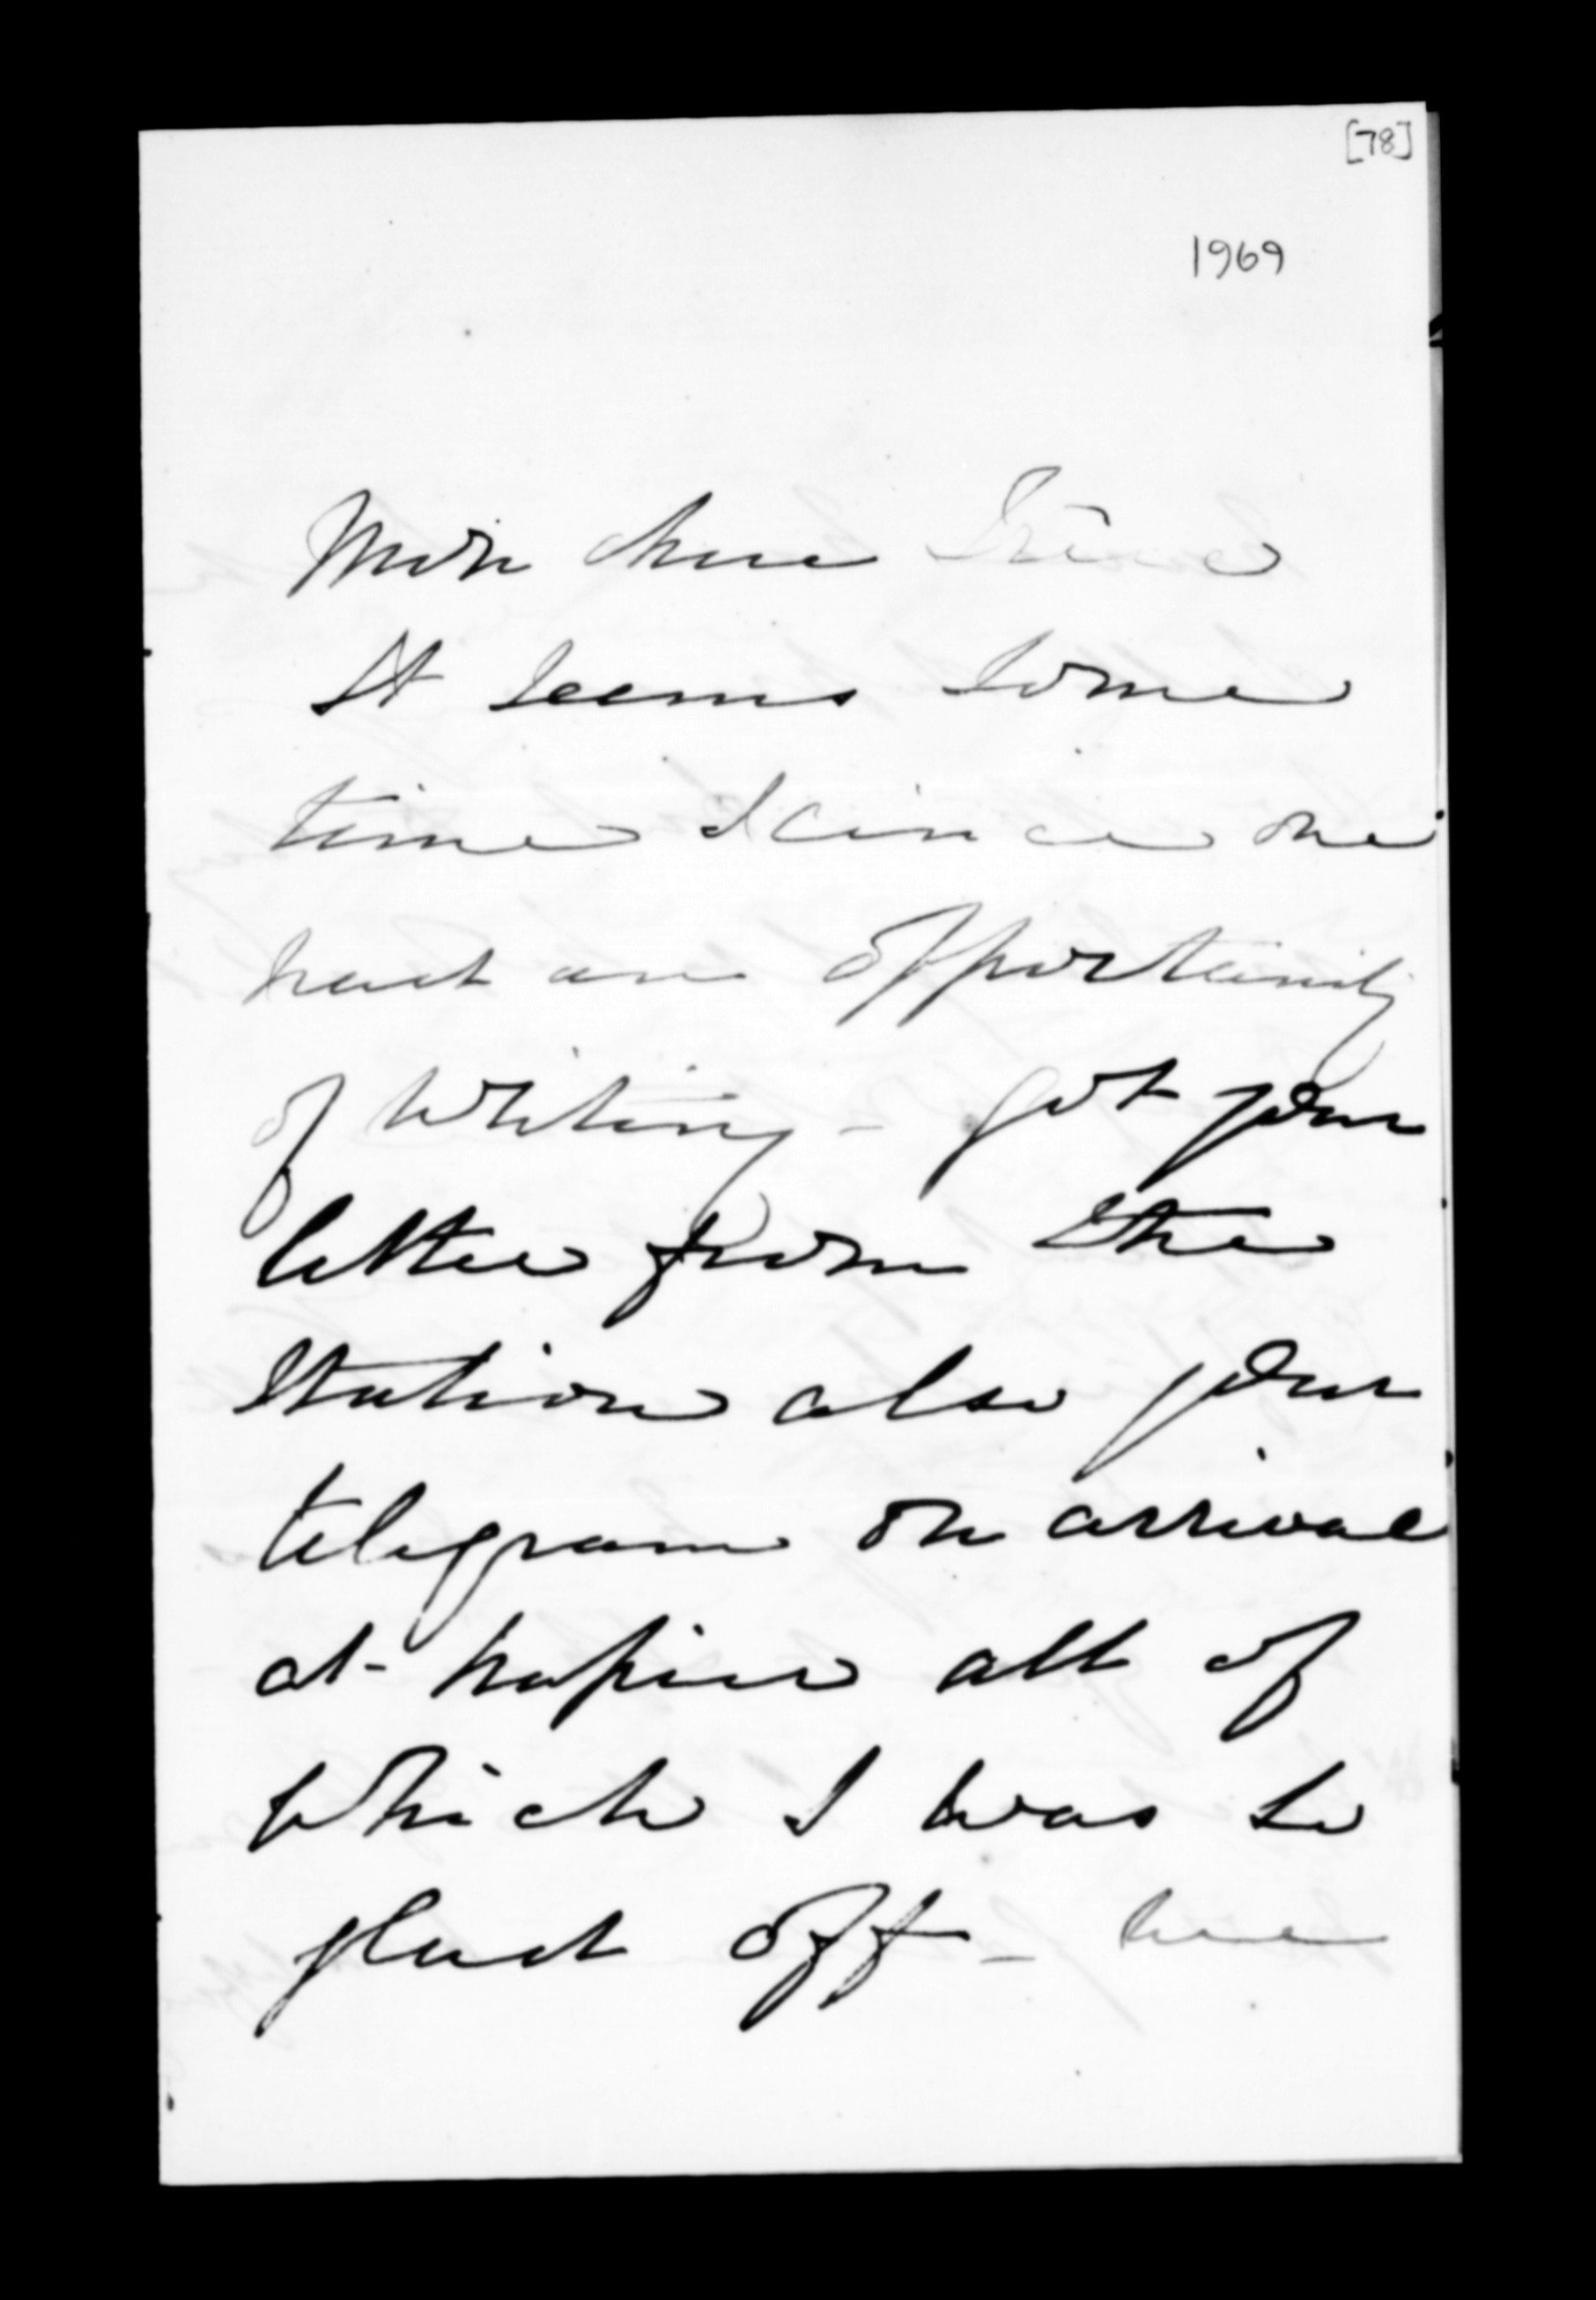 [78]
1969
Mon chere
It seems some
time scince one
had an opportunity
of writing - got your
letter from the
Station also your
telegram on arrival
at - Napier all of
which I was so
glad off -